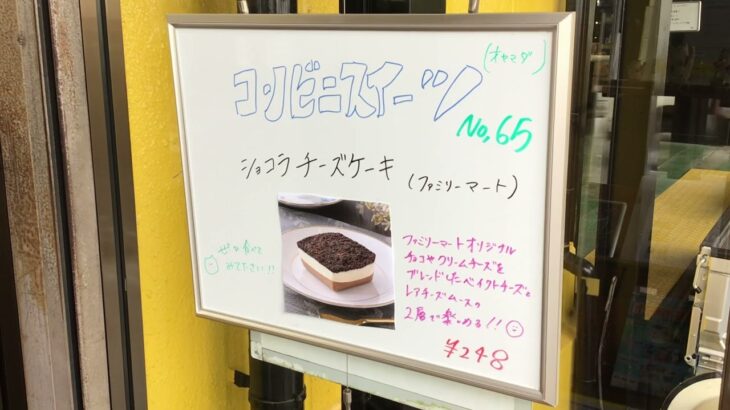 コンビニスイーツ
(オヤマダ)
No,65
ショコラチーズケーキ
(ファミリーマート)
ぜひ食べて
みて下さい!!
ファミリーマートオリジナル
チョコやクリームチーズを
ブレンドしたベイクトチーズと
レアチーズムースの
2層で楽しめる!!
¥248